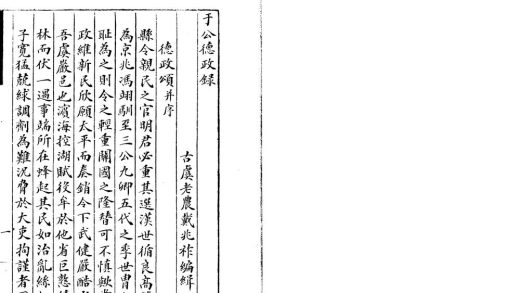 于公德政錄
古虞老農戴兆祚編緝
德政頌并序
縣令親民之官明君必重其選漢世循良高
為京兆馮翊馴至三公九卿五代之季世冑
恥為之則令之輕重關國之隆替可不慎歟
政維新民欣願太平而奏銷令下武健嚴酷
吾虞嚴邑也濱海控湖賦役牟於他省巨憝
林而伏一遇事端所在蜂起其民如治亂絲
子寬猛競絿調劑為難況脅於大吏拘謹者
一